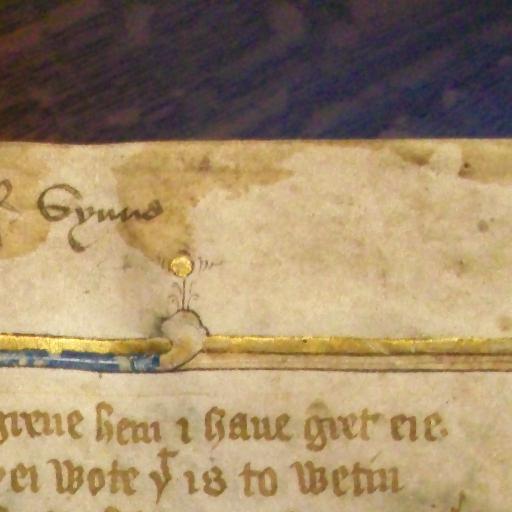 Synns
greue hem i haue gret eie.
yei wote yͭ is to wetin